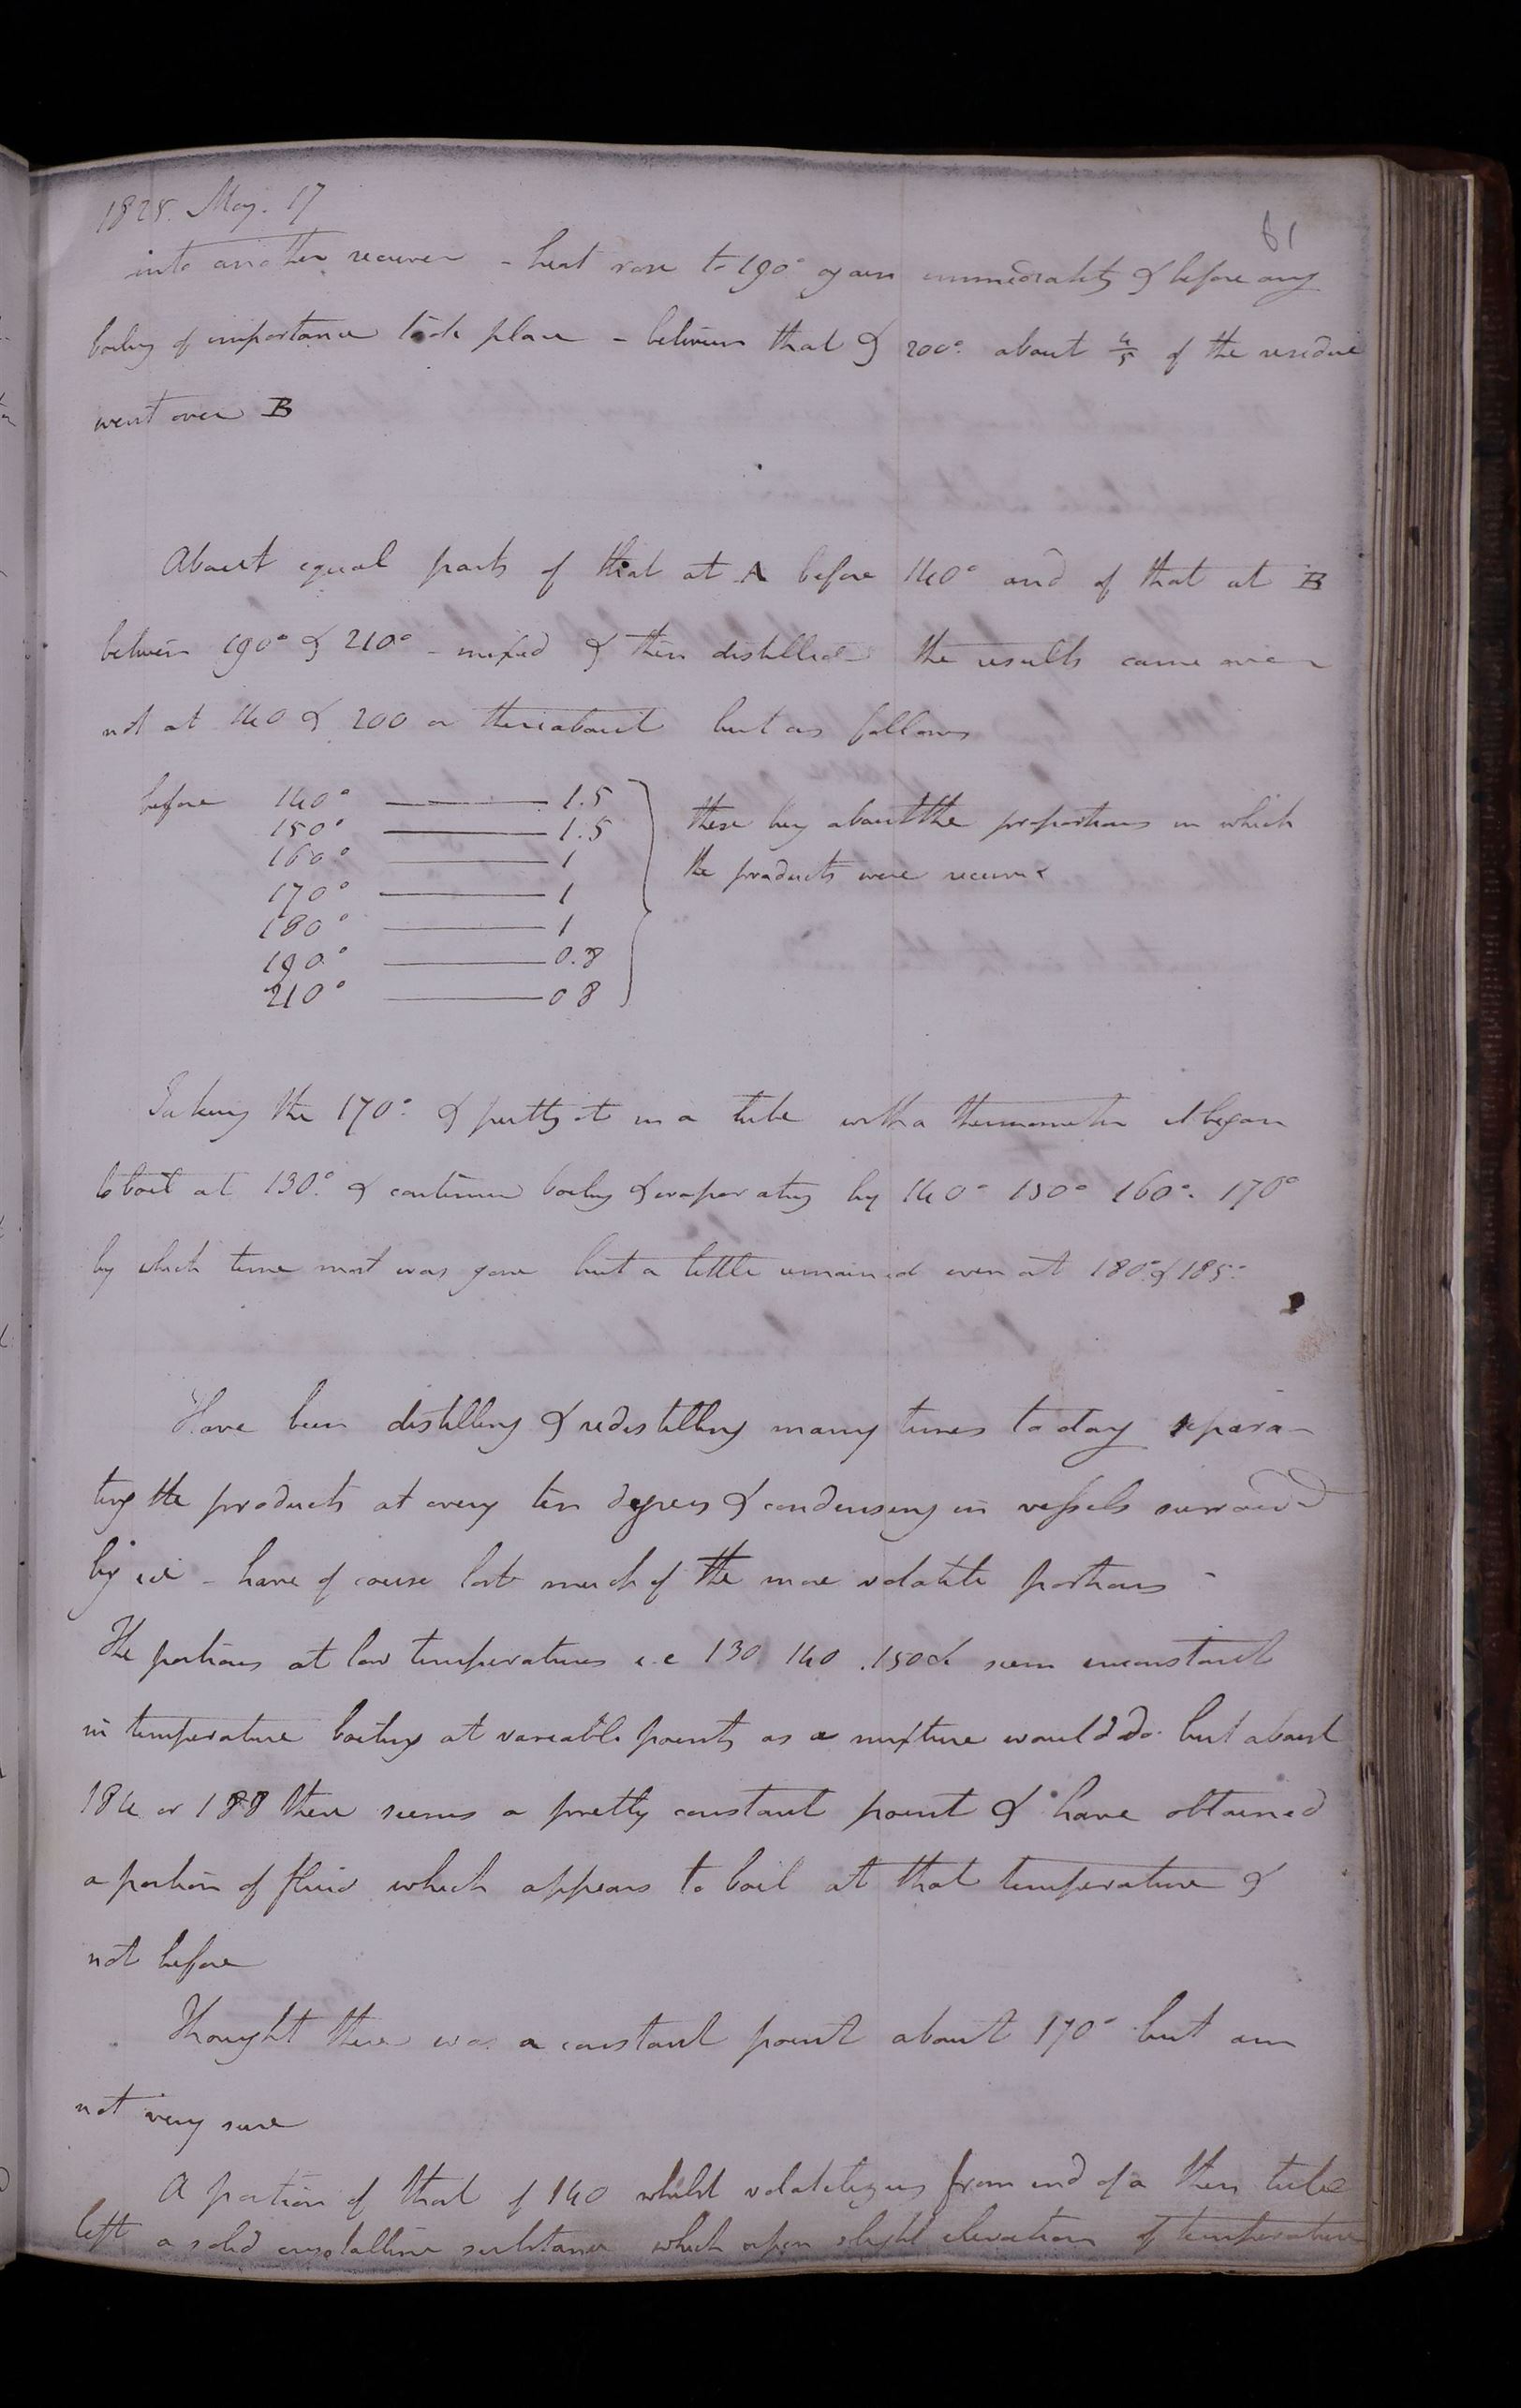 1825. May. 17
61
into another receiver - heat rose to 190° again immediately & before any
boiling of importance took place - between that & 200° about 4/5 of the residue
went over B
About equal parts of that at A before 140° and of that at B
between 190° & 210° - mixed & then distilled - the results came over
not at 140 & 200 or thereabout but as follows
before 140° ——— 1.5
150° ——— 1.5
160° ——— 1
170° ——— 1
180° ——— 1
190° ——— 0.8
210° ——— 0 8
these being about the proportions in which
the products were received
Taking the 170° & putting it in a tube with a thermometer it began
to boil at 130° & continued boiling & evaporating by 140° 150° 160° 170°
by which time most was gone but a little remained even at 180° & 185°
Have been distilling & redistilling many times to day separa-
ting the products at every ten degrees & condensing in vessels surround
by ice - have of course lost much of the more volatile portions -
The portions at low temperatures i.e 130 140 .150 &c seem inconstant
in temperature boiling at variable points as a mixture would do but about
184 or 188 there seems a pretty constant point & have obtained
a portion of fluid which appears to boil at that temperature &
not before
Thought there was a constant point about 170° but am
not very sure
A portion of that of 140 whilst volatilizing from end of a thin tube
left a solid crystalline substance which upon slight elevation of temperature